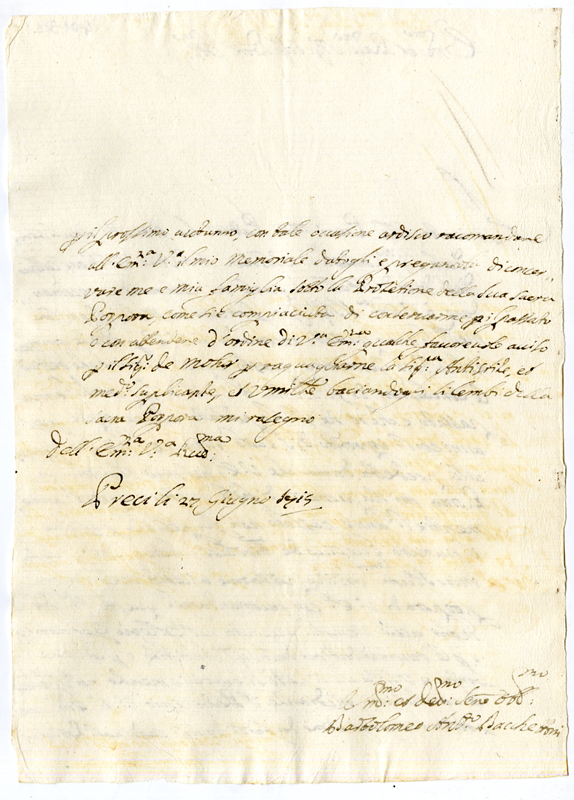 p il prossimo autunno, con tale occasione ardisco racomandare
all'Em:ᶻᵃ V:ᵃ il mio Memoriale datogli e pregandola di conser-
vare me e mia famiglia sotto la Protetione della sua sacra
Porpora come si è compiaciuta di conservarne p il passato
con attendere d'ordine di Vʳᵃ Em:ᶻᵃ qualche favorevole aviso
p il Sigʳ: de Mohr p raguagliarne la Sigʳᵃ, et
med:ᵒ suplicante, et Umilᵗᵉ baciandogli li lembi della
sacra Porpora mi rasegno
Dell' Em:ᶻᵃ V:ᵃ Rev:ᵐᵃ
Preci li 27 Giugno 1715
Um:ᵐᵒ et dev:ᵐᵒ Serᵉ obb:ᵐᵒ
Bartolomeo Antᵒ Bachettoni